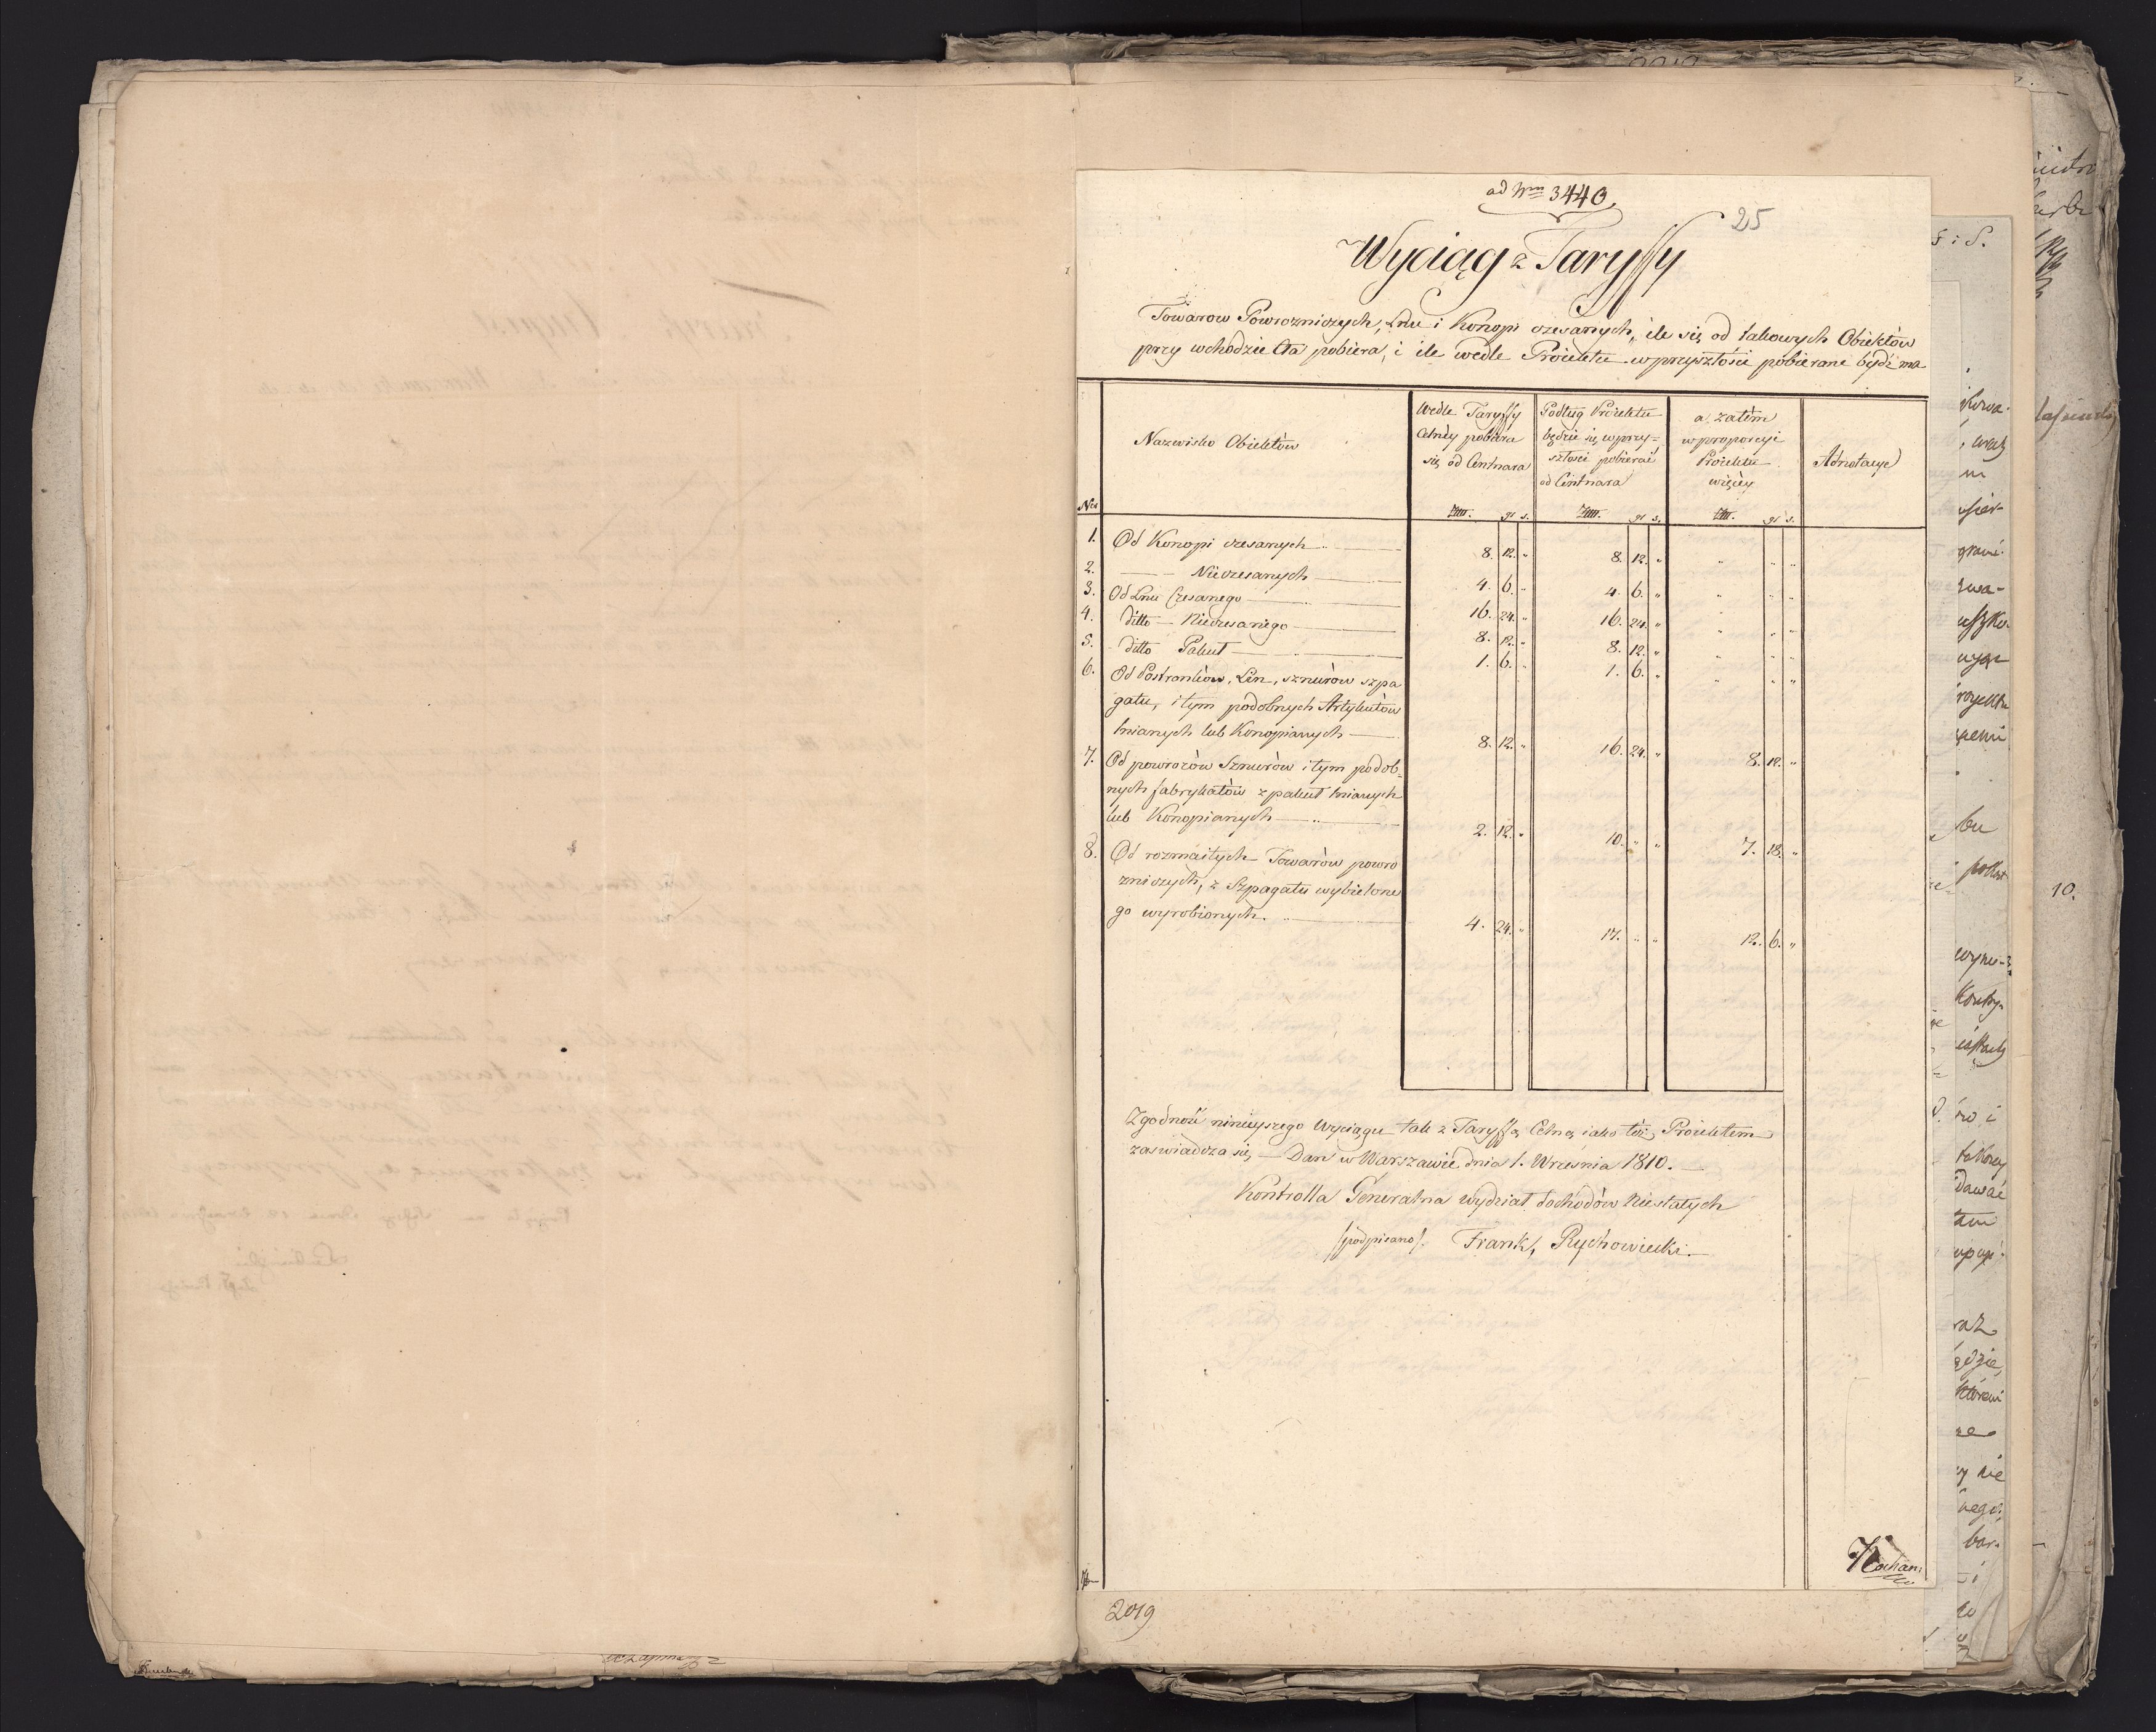 ad Nrum 3440.
25
Wyciąg z Taryffy
Towarow Powrozniczych, Lnu i Konopi czesanych, ile się od takowych Obiektów
przy wchodzie Cła pobiera, i ile wedle Proiektu w przyszłości pobierane bydź ma
Nro
Nazwisko Obiektów
Wedle Taryffy
Celnéy pobiera
się od Centnara
Podług Proiektu
będzie się w przy=
szłości pobierać
od Centnara
a zatém
w proporcyi
Proiektu
więcéy
Adnotacye
gr s. gr s. gr s.
1. Od Konopi czesanych 8. 12. " 8. 12. " " " "
2. — Nieczesanych 4. 6. " 4. 6. " " " "
3. Od Lnu Czesanego 16. 24. " 16. 24. " " " "
4. ditto — Nieczesanego 8. 12. " 8. 12. " " " "
5. ditto Pakuł 1. 6. " 1. 6. " " " "
6. Od Postronków, Lin, sznurów szpa
gatu, i tym podobnych Artykułów
lnianych lub Konopianych 8. 12. " 16. 24. " 8. 12. "
7. Od powrozów Sznurów i tym podob-
nych fabrykatów z pakuł lnianych
lub Konopianych 2. 12. " 10. " " 7. 18. "
8. Od rozmaitych Towarów powro
zniczych, z Szpagatu wybielone
go wyrobionych. 4. 24. " 17. " " 12. 6. "
Zgodność ninieyszego Wyciągu tak z Taryffą Celną iako też Proiektem
zaswiadcza się — Dan w Warszawie dnia 1. Września 1810. —
Kontrolla Generalna wydział dochodów Niestałych
/podpisano/. Frank, Rychowiecki. —
2019
10.